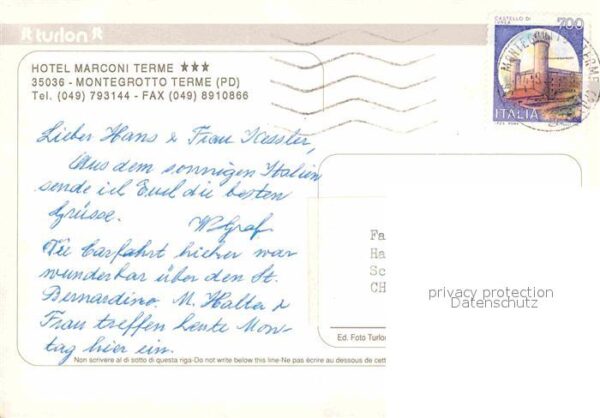 turlon
turlon
HOTEL MARCONI TERME ★★★
35036 - MONTEGROTTO TERME (PD)
Tel. (049) 793144 - FAX (049) 8910866
CASTELLO DI
IVREA
700
ITALIA
MONTEGROTTO TERME
Lieber Hans & Frau Kessler,
Aus dem sonnigen Italien
sende ich Euch die besten
Grüsse. W Graf
Die Carfahrt hieher war
wunderbar über den St.
Bernardino. M. Haller &
Frau treffen heute Mon-
tag hier ein.
Fa
Ha
Sc
CH
privacy protection
Datenschutz
Ed. Foto Turlon
Non scrivere al di sotto di questa riga-Do not write below this line-Ne pas écrire au dessous de cett